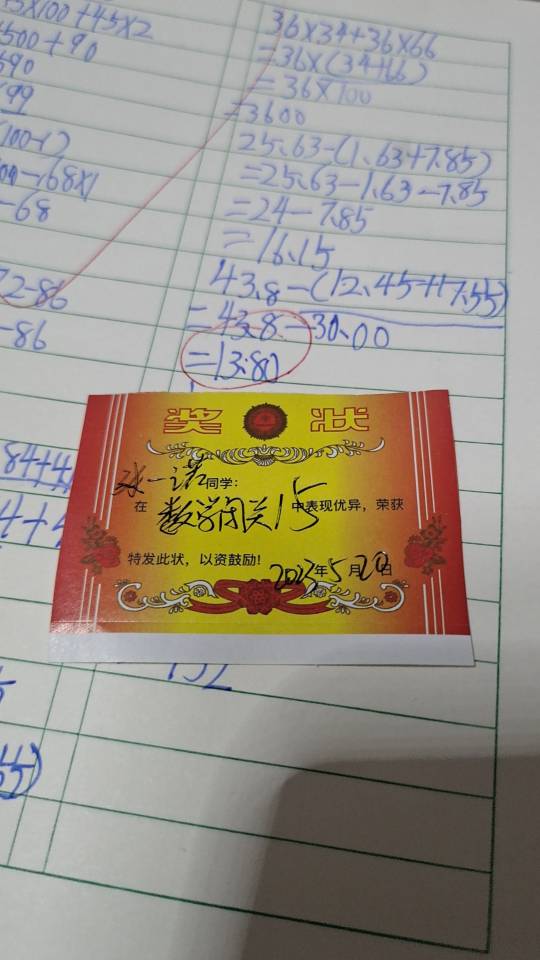 45×100+45×2
4500+90
590
×99
(100-1)
-168×1
-68
72-86
-86
84+4
4+4
36×34+36×66
=36×(34+66)
=36×100
=3600
25.63-(1.63+7.85)
=25.63-1.63-7.85
=24-7.85
=16.15
43.8-(12.45+17.55)
=43.8-30.00
=13.80
奖 状
一诺同学:
在 数学闯关15 中表现优异，荣获
特发此状，以资鼓励!
2023年5月20日
132